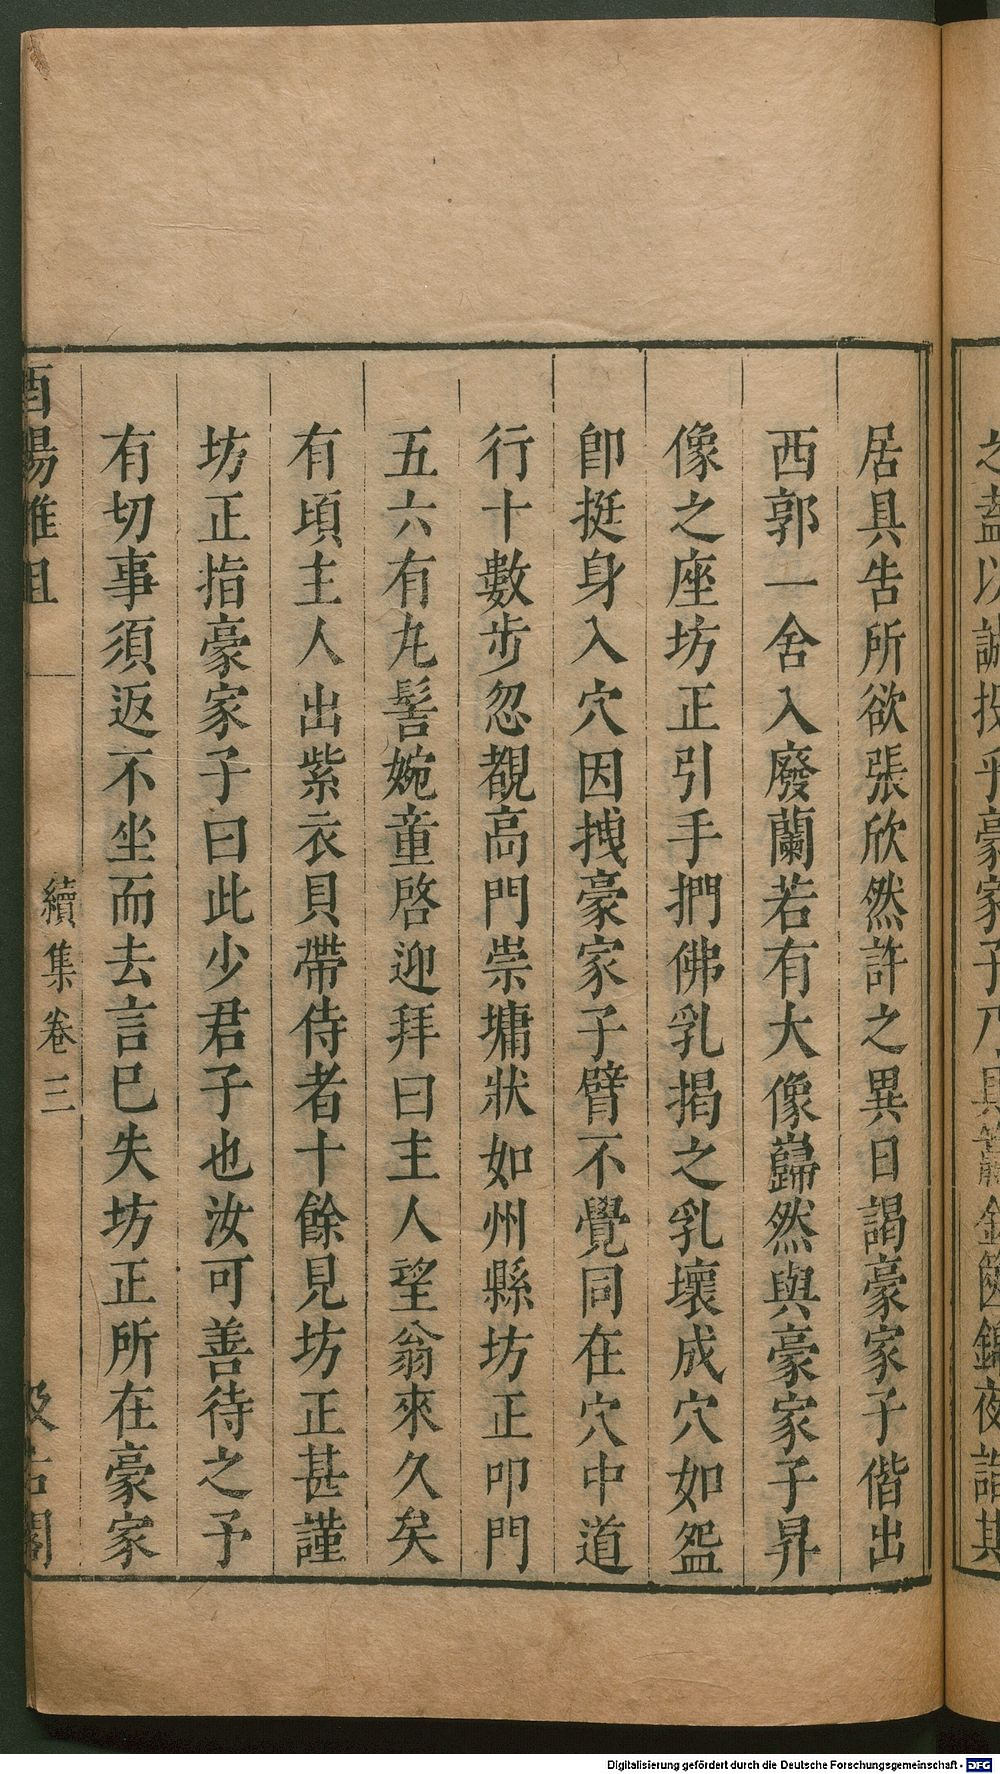 之蓋以誠投乎豪家子乃具 金篋錦夜詣其
居具告所欲張欣然許之異日謁豪家子偕出
西郭一舍入廢蘭若有大像巋然與豪家子昇
像之座坊正引手捫佛乳揭之乳壞成穴如盌
卽挺身入穴因拽豪家子臂不覺同在穴中道
行十數步忽覩高門崇墉狀如州縣坊正叩門
五六有丸髻婉童啓迎拜曰主人望翁來久矣
有頃主人出紫衣貝帶侍者十餘見坊正甚謹
坊正指豪家子曰此少君子也汝可善待之予
有切事須返不坐而去言已失坊正所在豪家
酉陽雜俎 續集卷三 汲古閣
Digitalisierung gefördert durch die Deutsche Forschungsgemeinschaft - DFG